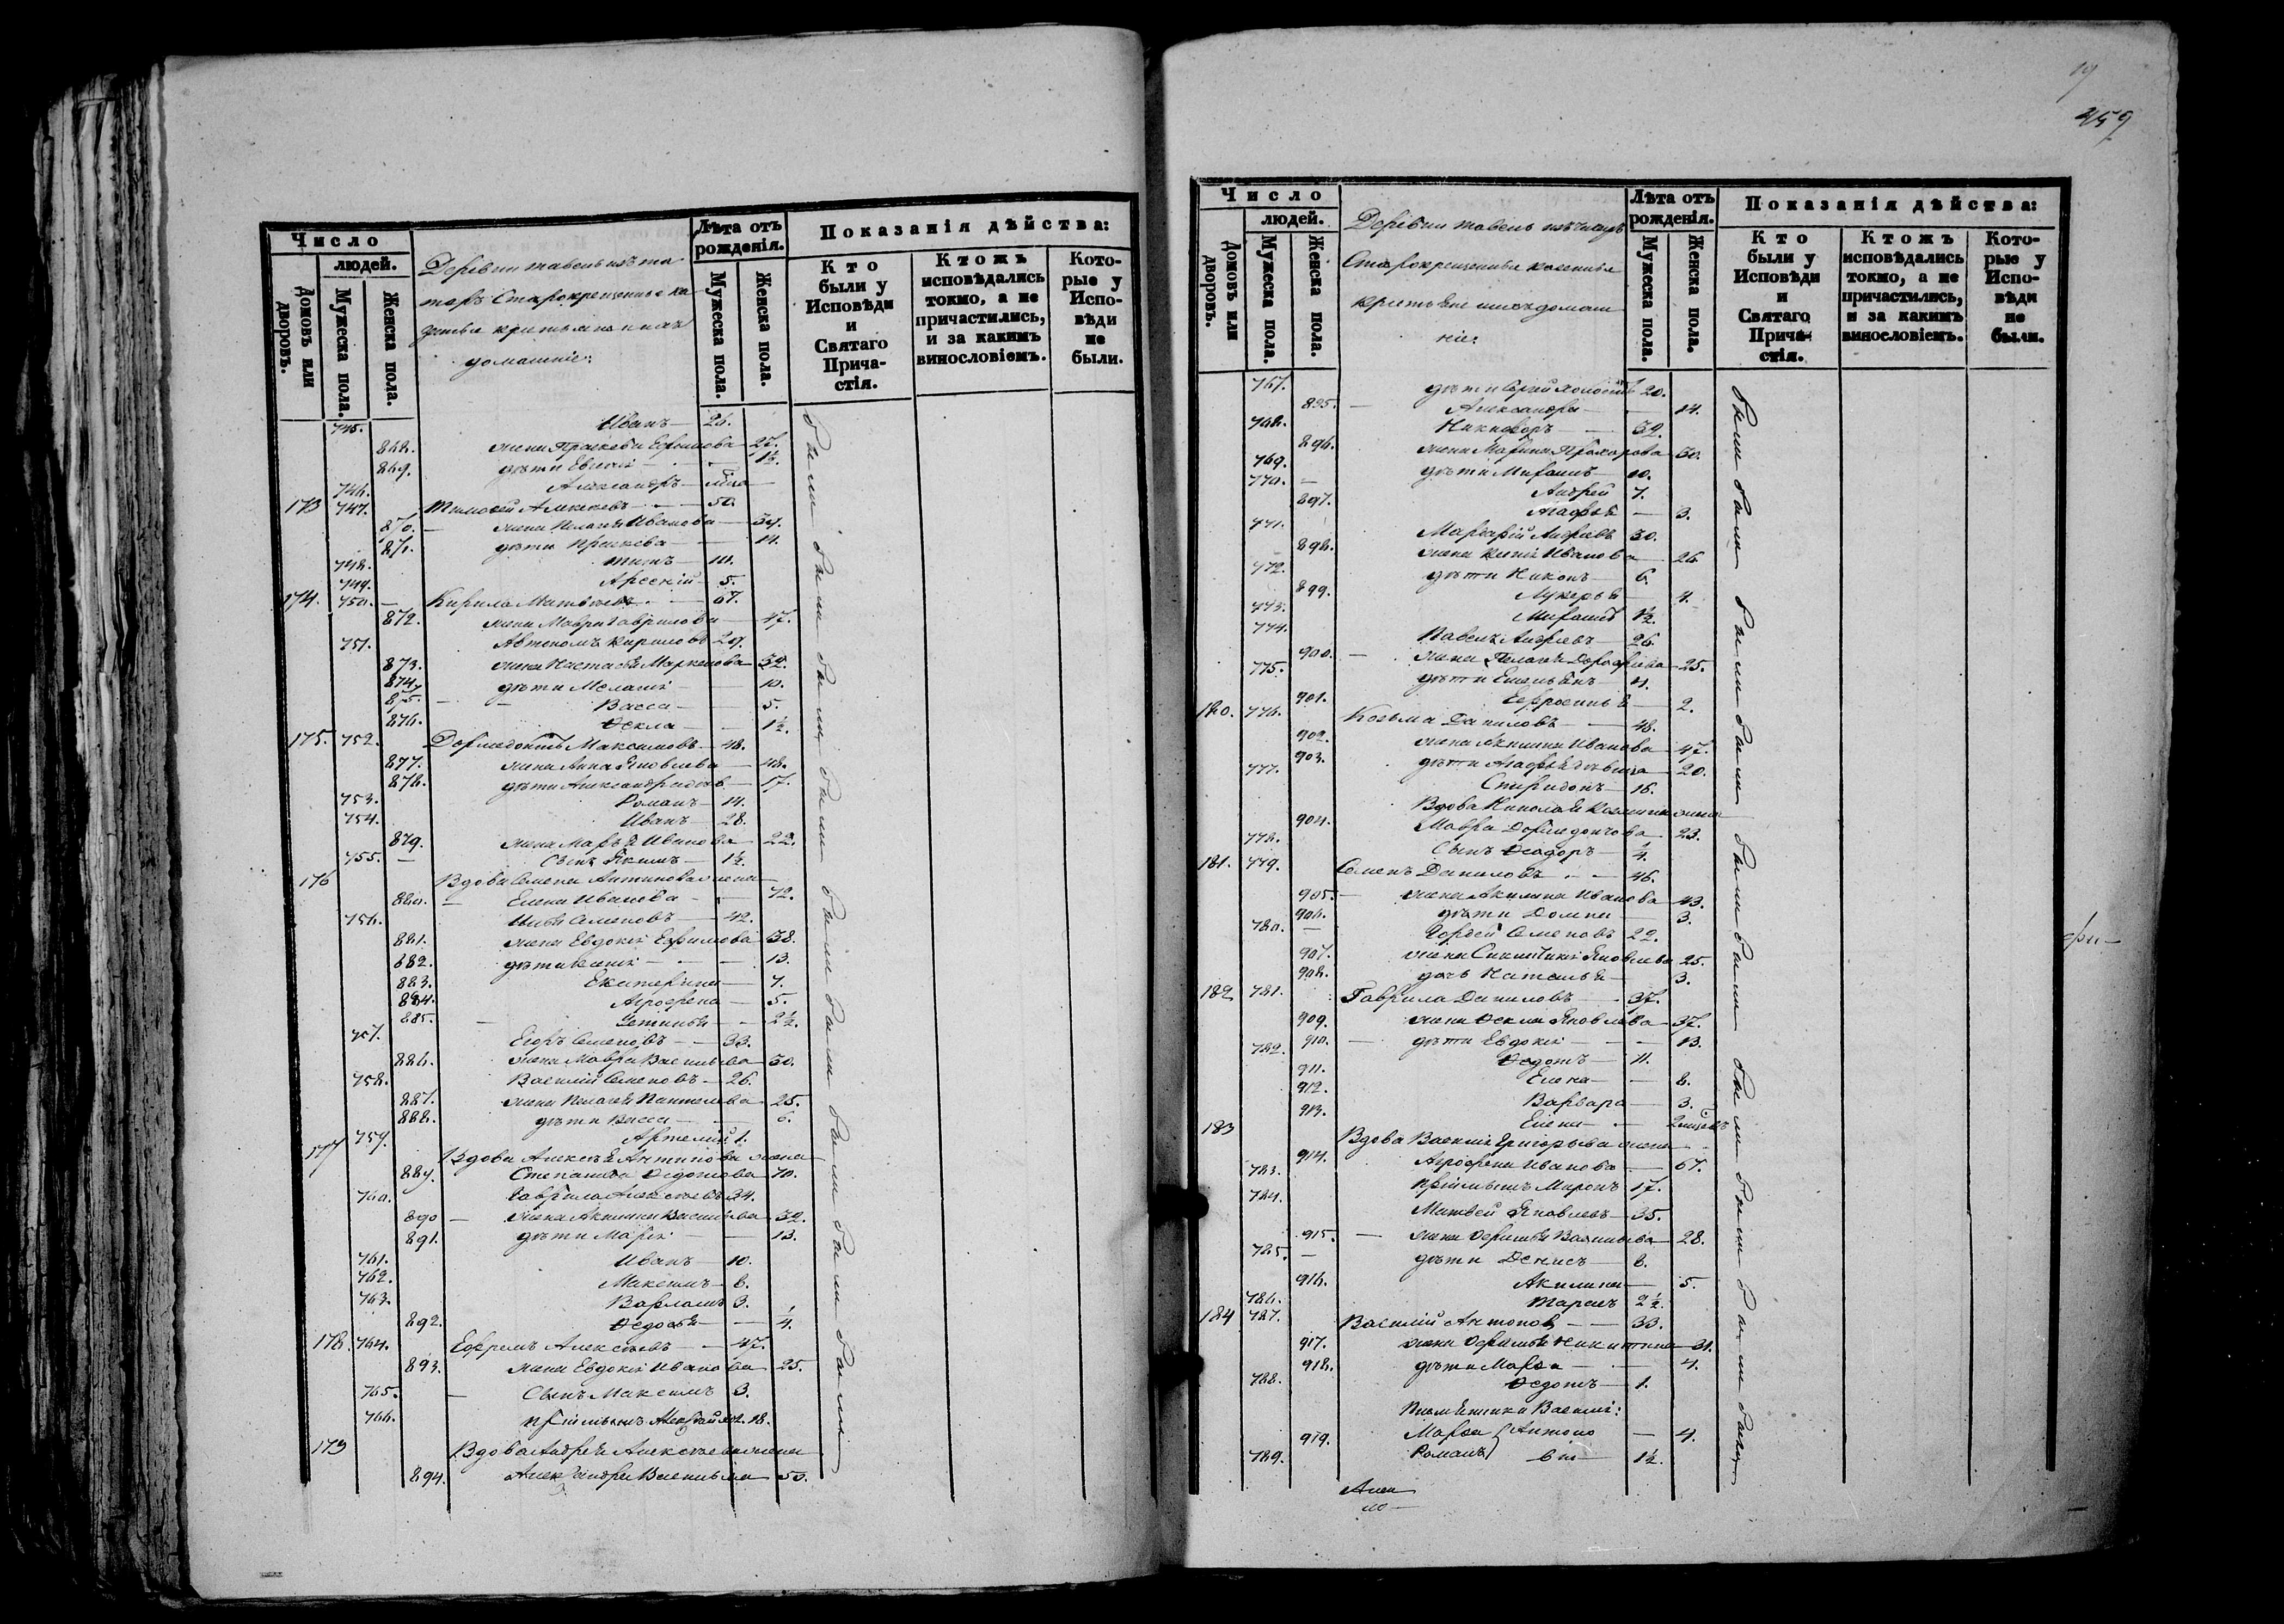 Число
людей.
Домовъ или дворовъ.
Мужеска пола.
Женска пола.
Деревни
Старокрещенные
домашніе:
Лѣта отъ рожденія.
Мужеска пола.
Женска пола.
Показанія дѣйства:
Кто были у Исповѣди и Святаго Прича-стія.
Ктожъ исповѣдались токмо, а не причастились, и за какимъ винословіемъ.
Кото-рые у Испо-вѣди не были.
745. Иванъ 26.
868. жена Ефимова 27.
869. дѣти 1½.
746. Александръ
173 747. Тимофей 50.
870. жена Иванова 39.
871. дѣти 14.
748. Титъ 10.
749. Арсеній 5.
174. 750. Кирила Матвѣевъ 67.
872. жена Мавра Гаврилова 47.
751. Автономъ Кириловъ 29.
873. жена Настасья Маркелова 32.
874. дѣти 10.
875. Васса 5.
876. Ѳекла 1½.
175. 752. Дормедонтъ Максимовъ 48.
877. жена Анна Яковлева 48.
878. дѣти Александра 17.
753. Романъ 14.
754. Иванъ 28.
879. жена Марья Иванова 22.
755. сынъ Якимъ 1½.
176 Вдова Семена Антипова жена
880. Елена Иванова 72.
756. Илья Семеновъ 42.
881. жена Евдокія Ефимова 38.
882. дѣти 13.
883. Екатерина 7.
884. Агрофена 5.
885. Устинья 2½.
757. Егоръ Семеновъ 33.
886. жена Мавра Васильева 30.
758. Василій Семеновъ 26.
887. жена Пелагея Пантелева 25.
888. дѣти Васса 6.
759. Артемій 1.
177 Вдова Алексѣя Антипова жена
889. Степанида Ѳедотова 70.
760. Гаврила Алексѣевъ 34.
890 жена Акилина Васильева 32.
891. дѣти Марія 13.
761. Иванъ 10.
762. Максимъ 6.
763. Варламъ 3.
892. Ѳедосья ¼.
178. 764. Ефремъ Алексѣевъ 47.
893. жена Евдокія Иванова 25.
765. сынъ Максимъ 3.
766. пріимышъ 18.
179 Вдова Андрея Алексѣева жена
894. Александра Васильева 50.
были были были были были были были были были были были были
19
459
Число
людей.
Домовъ или дворовъ.
Мужеска пола.
Женска пола.
Деревни
Старокрещенные
домаш
ніе:
Лѣта отъ рожденія.
Мужеска пола.
Женска пола.
Показанія дѣйства:
Кто были у Исповѣди и Святаго Прича-стія.
Ктожъ исповѣдались токмо, а не причастились, и за какимъ винословіемъ.
Кото-рые у Испо-вѣди не были.
767. дѣти 20.
895. Александра 14.
768. Никифоръ 32.
896. жена Марина Прохорова 30.
769. дѣти 10.
770. Андрей 7.
897. Агафья 3.
771. Андревъ 30.
898. жена Иванова 26
772. дѣти Никонъ 6.
899. Лукерья 4.
773. 1½.
774. Павелъ Андревъ 26.
900. жена Дорофеева 25.
775. дѣти Емельянъ 4.
901. Ефросинья 2.
180. 776. Козьма Даниловъ 48.
902. жена Акилина Иванова 47.
903. дѣти Агафья дѣвица 20.
777. Спиридонъ 16.
Вдова Николая Козмина жена
904. Мавра Дормедонтова 23.
778. сынъ Ѳеодоръ ¼.
181. 779. Семенъ Даниловъ 46.
905. жена Акилина Иванова 43.
906. дѣти Домна 3.
780. Гордей Семеновъ 22.
907. жена Яковлева 25.
908. дочь Наталья 3.
182 781. Гаврила Даниловъ 37.
909. жена Ѳекла Яковлева 37.
910. дѣти Евдокія 13.
782. Ѳедотъ 11.
911. Елена 8.
912. Варвара 3.
913. Елена
183 Вдова Василія Григорьева жена
914. Агрофена Иванова 67.
783. пріимышъ Миронъ 17.
784. Матвей Яковлевъ 35.
915. жена Васильева 28.
785. дѣти Денисъ 8.
916. Акилина 5.
786. Тарасъ 2½.
184 787. Василій Антоновъ 33.
917. жена Никитина 31.
918. дѣти Марѳа 4.
788. Ѳедотъ 1.
Племянники Василія:
919. Марѳа Антоно 4.
789. Романъ вы 1½.
были были были были были были были были были были были